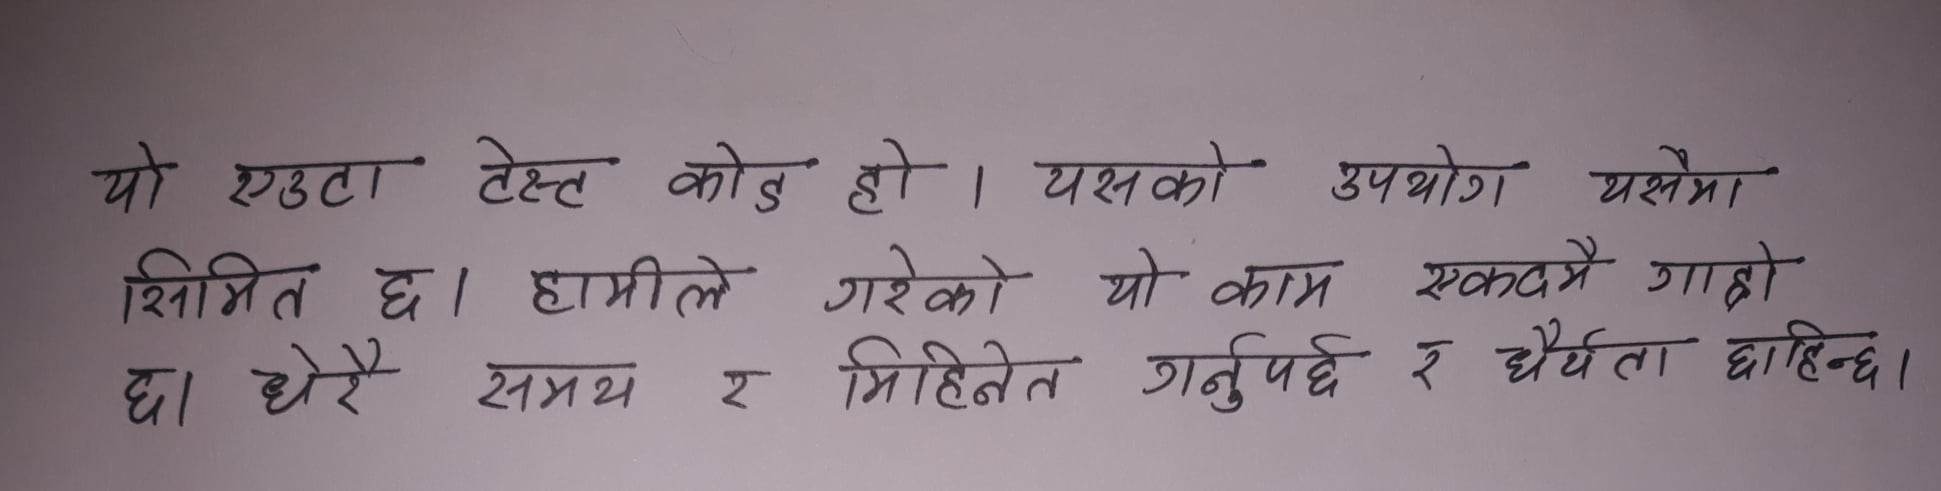 यो एउटा टेस्ट कोड हो । यसको उपयोग यसैमा
सिमित छ । हामीले गरेको यो काम एकदमै गाह्रो
छ । धेरै समय र मिहिनेत गर्नुपर्छ र धैर्यता छाहिन्छ ।